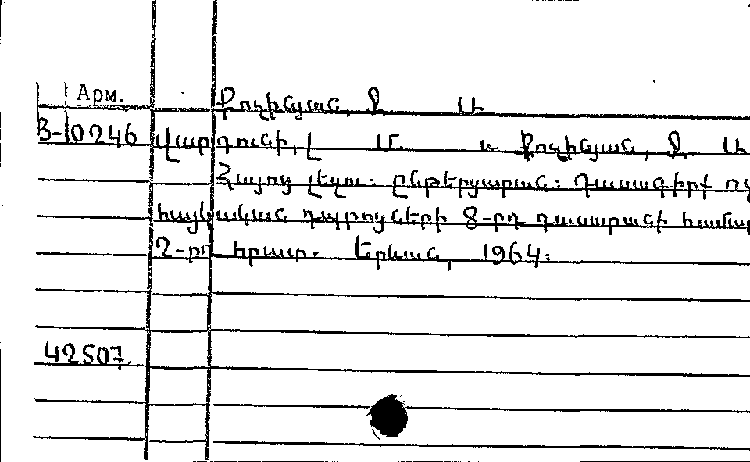 Арм.
Քոչինյան, Ջ. Ա.
В-10246 Վարդունի, Լ. Մ. և Քոչինյան, Ջ. Ա.
Հայոց լեզու։ Ընթերցարան։ Դասագիրք ոչ
հայկական դպրոցների 8-րդ դասարանի համար
2-րդ հրատ. Երևան, 1964։
42507